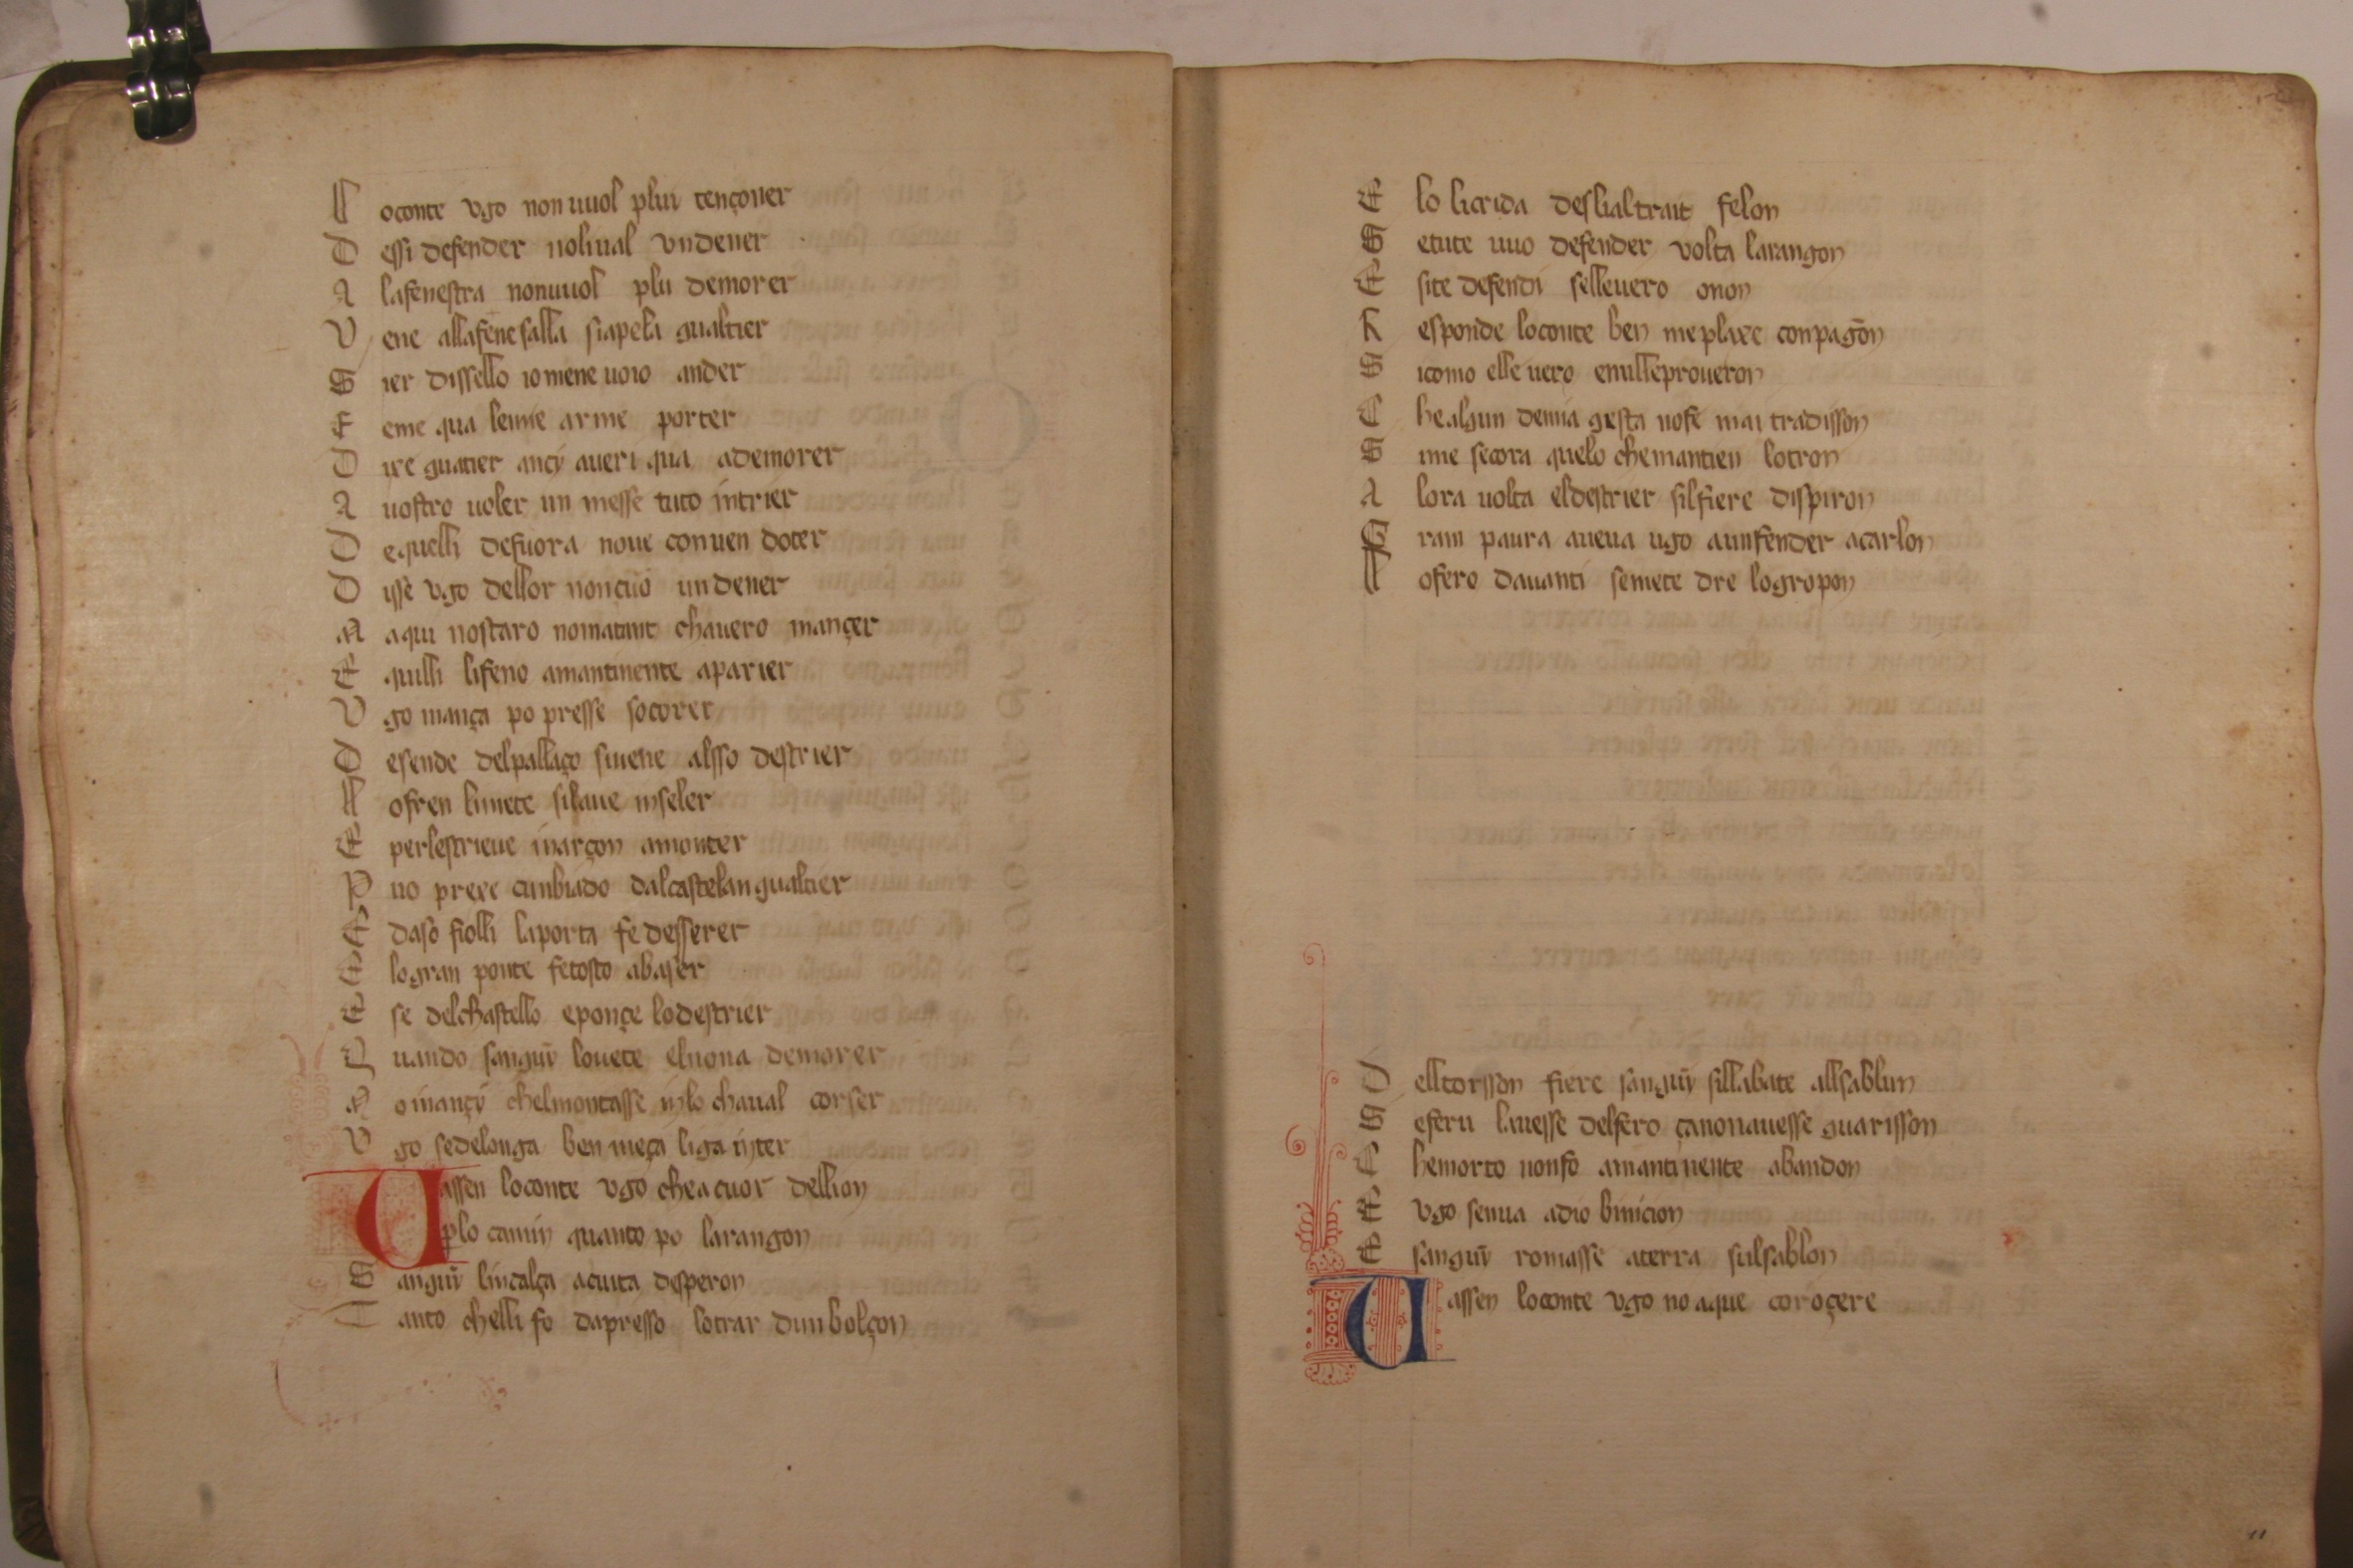 L oconte vgo non uuol plui tençoner
D essi defender noli ual vn dener
A lafenestra nonuuol plu demorer
V ene alla fene salla siapela gualtier
S ier dissello io mene uoio ander
F eme qua lemie arme porter
D ixe guatier ancy aueri qua ademorer
A uostro uoler un messe tuto intrier
D equelli defuora noue conuen doter
D isse vgo dellor non cuio un dener
M aqui nostaro nomatint chauero mançer
E quilli lifeno amantinente aparier
V go mança po presse socorer
D esende delpallaço siuene alsso destrier
L ofren limete silaue inseler
E perlestrieue inarçon amonter
P uo prexe cunbiado dalcastelan gualtier
E daso fiolli laporta fe desserer
E logran ponte fetosto abaser
E se delchastello eponçe lodestrier
Q uando sanguin louete elnona demorer
A o inançi chelmontasse inlo chaual corser
V go sedelonga ben meça liga inter
Vassen loconte vgo chea cuor dellion
plo camin quanto po larangon
S anguin lincalça acuita desperon
T anto chelli fo dapresso lotrar dun bolçon
E lo licrida deslial trait felon
S etute uuo defender volta larangon
E site defendi selleuero onon
R esponde loconte ben meplaxe conpagõn
S icomo elle uero enulleproueron
C healgun demia gesta nofe mai tradisson
S ime secora quelo chemantien lotron
A lora uolta eldestrier silfiere dispiron
G ran paura aueua ugo aunfender acarlon
L ofero dauanti semete dre logropon
D elltorsson fiere sanguin sillabate allsablun
S eferu lauesse delfero çanonauesse guarisson
C hemorto nonfo amantinente abandon
E vgo senua adio binicion
E sanguin romasse aterra sulsablon
Vassen loconte vgo no aque coroçere
11